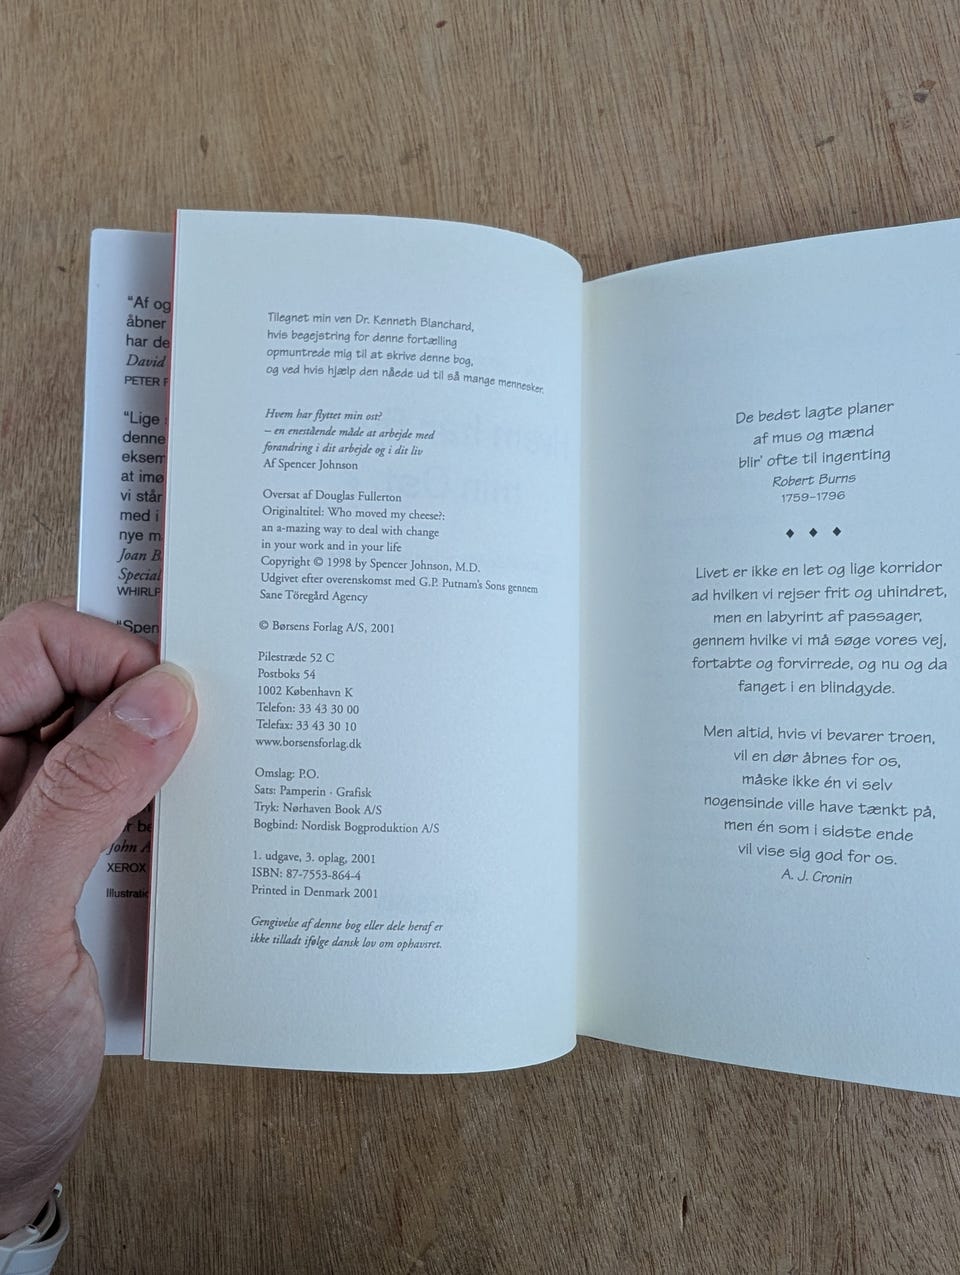 “Af og
åbner
har de
David
PETER
“Lige
denne
eksem
at imø
vi står
med i
nye m
Joan B
Special
WHIRLP
“Spen
r be
John A
XEROX
Illustratio
Tilegnet min ven Dr. Kenneth Blanchard,
hvis begejstring for denne fortælling
opmuntrede mig til at skrive denne bog,
og ved hvis hjælp den nåede ud til så mange mennesker.
Hvem har flyttet min ost?
– en enestående måde at arbejde med
forandring i dit arbejde og i dit liv
Af Spencer Johnson
Oversat af Douglas Fullerton
Originaltitel: Who moved my cheese?:
an a-mazing way to deal with change
in your work and in your life
Copyright © 1998 by Spencer Johnson, M.D.
Udgivet efter overenskomst med G.P. Putnam’s Sons gennem
Sane Töregård Agency
© Børsens Forlag A/S, 2001
Pilestræde 52 C
Postboks 54
1002 København K
Telefon: 33 43 30 00
Telefax: 33 43 30 10
www.borsensforlag.dk
Omslag: P.O.
Sats: Pamperin · Grafisk
Tryk: Nørhaven Book A/S
Bogbind: Nordisk Bogproduktion A/S
1. udgave, 3. oplag, 2001
ISBN: 87-7553-864-4
Printed in Denmark 2001
Gengivelse af denne bog eller dele heraf er
ikke tilladt ifølge dansk lov om ophavsret.
De bedst lagte planer
af mus og mænd
blir’ ofte til ingenting
Robert Burns
1759–1796
♦ ♦ ♦
Livet er ikke en let og lige korridor
ad hvilken vi rejser frit og uhindret,
men en labyrint af passager,
gennem hvilke vi må søge vores vej,
fortabte og forvirrede, og nu og da
fanget i en blindgyde.
Men altid, hvis vi bevarer troen,
vil en dør åbnes for os,
måske ikke én vi selv
nogensinde ville have tænkt på,
men én som i sidste ende
vil vise sig god for os.
A. J. Cronin